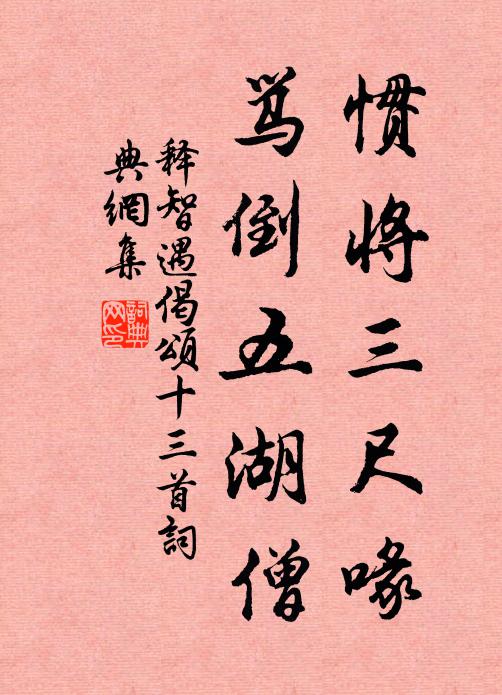 惯将三尺喙
骂倒五湖僧
释智遇偈頌十三首詞
典網集
詞典网印